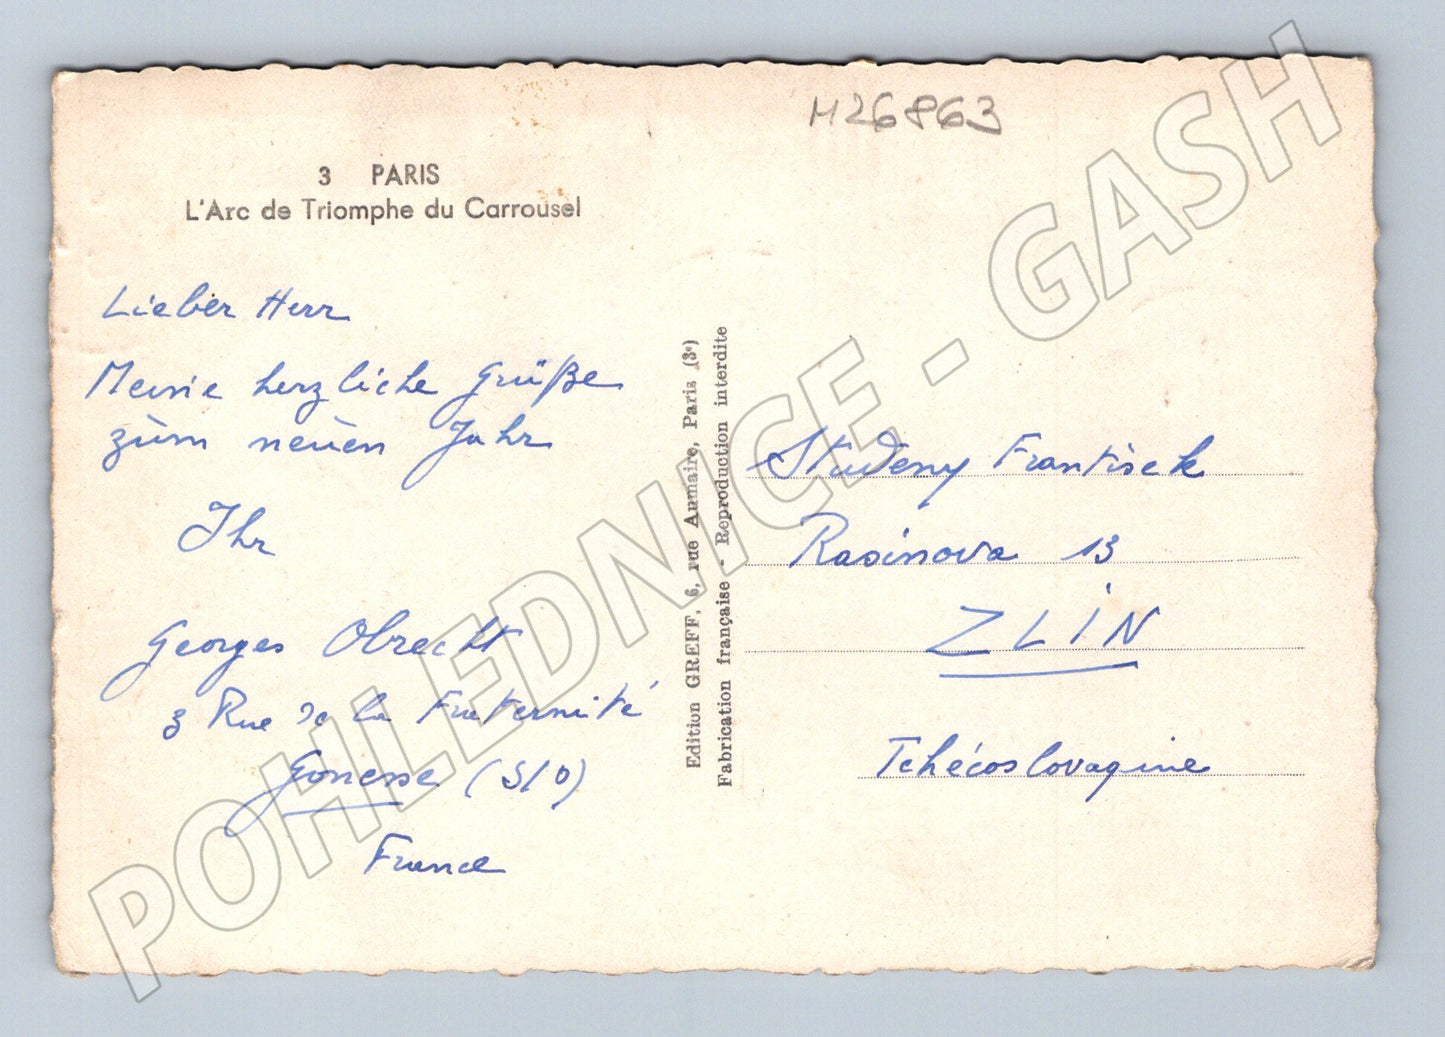 M26863
3 PARIS
L'Arc de Triomphe du Carrousel
Lieber Herr
Meine herzliche Grüße
zum neuen Jahr
Ihr
Georges Obrecht
3 Rue de la Fraternité
Gonesse (S/O)
France
Edition GREFF, 6, rue Aumaire, Paris (3e)
Fabrication française - Reproduction interdite
Studeny Frantisek
Rasinova 13
ZLIN
Tchécoslovaquie
POHLEDNICE - GASH